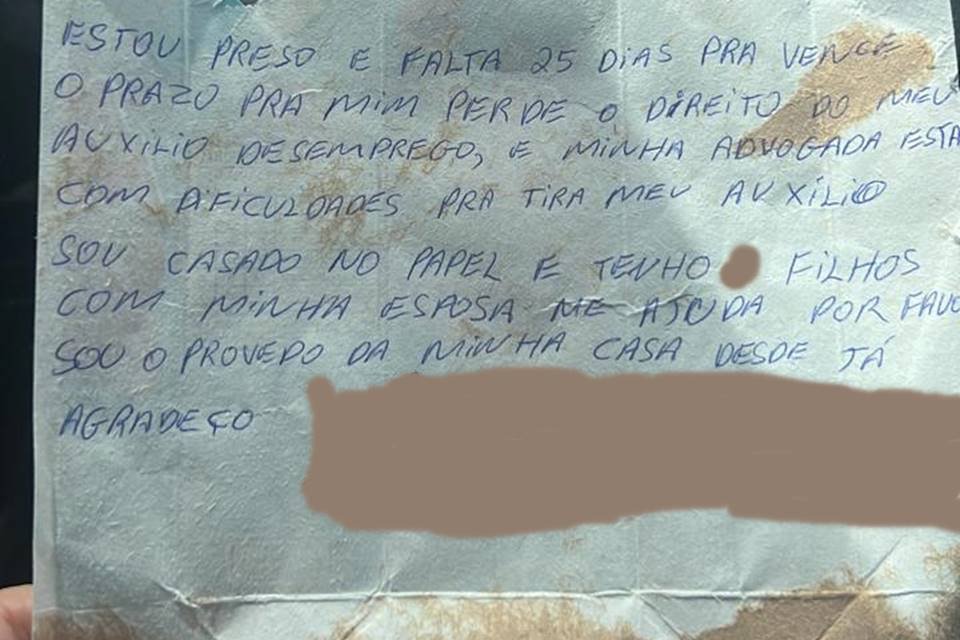 ESTOU PRESO E FALTA 25 DIAS PRA VENCE
O PRAZO PRA MIM PERDE O DIREITO DO MEU
AUXILIO DESEMPREGO, E MINHA ADVOGADA ESTA
COM DIFICULDADES PRA TIRA MEU AUXÍLIO
SOU CASADO NO PAPEL E TENHO FILHOS
COM MINHA ESPOSA ME AJUDA POR FAVO
SOU O PROVEDO DA MINHA CASA DESDE JÁ
AGRADEÇO